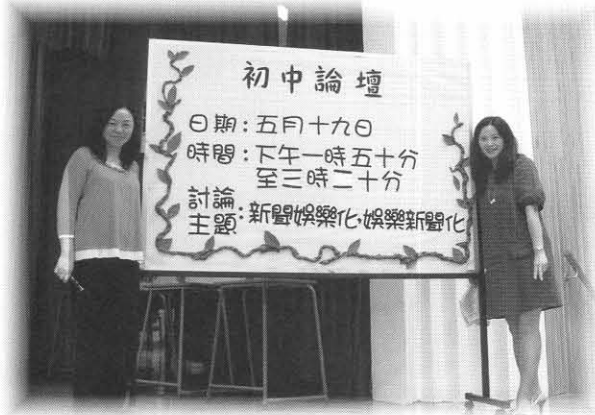 初中論壇
日期:五月十九日
時間:下午一時五十分
至三時二十分
討論
主題:新聞娛樂化,娛樂新聞化